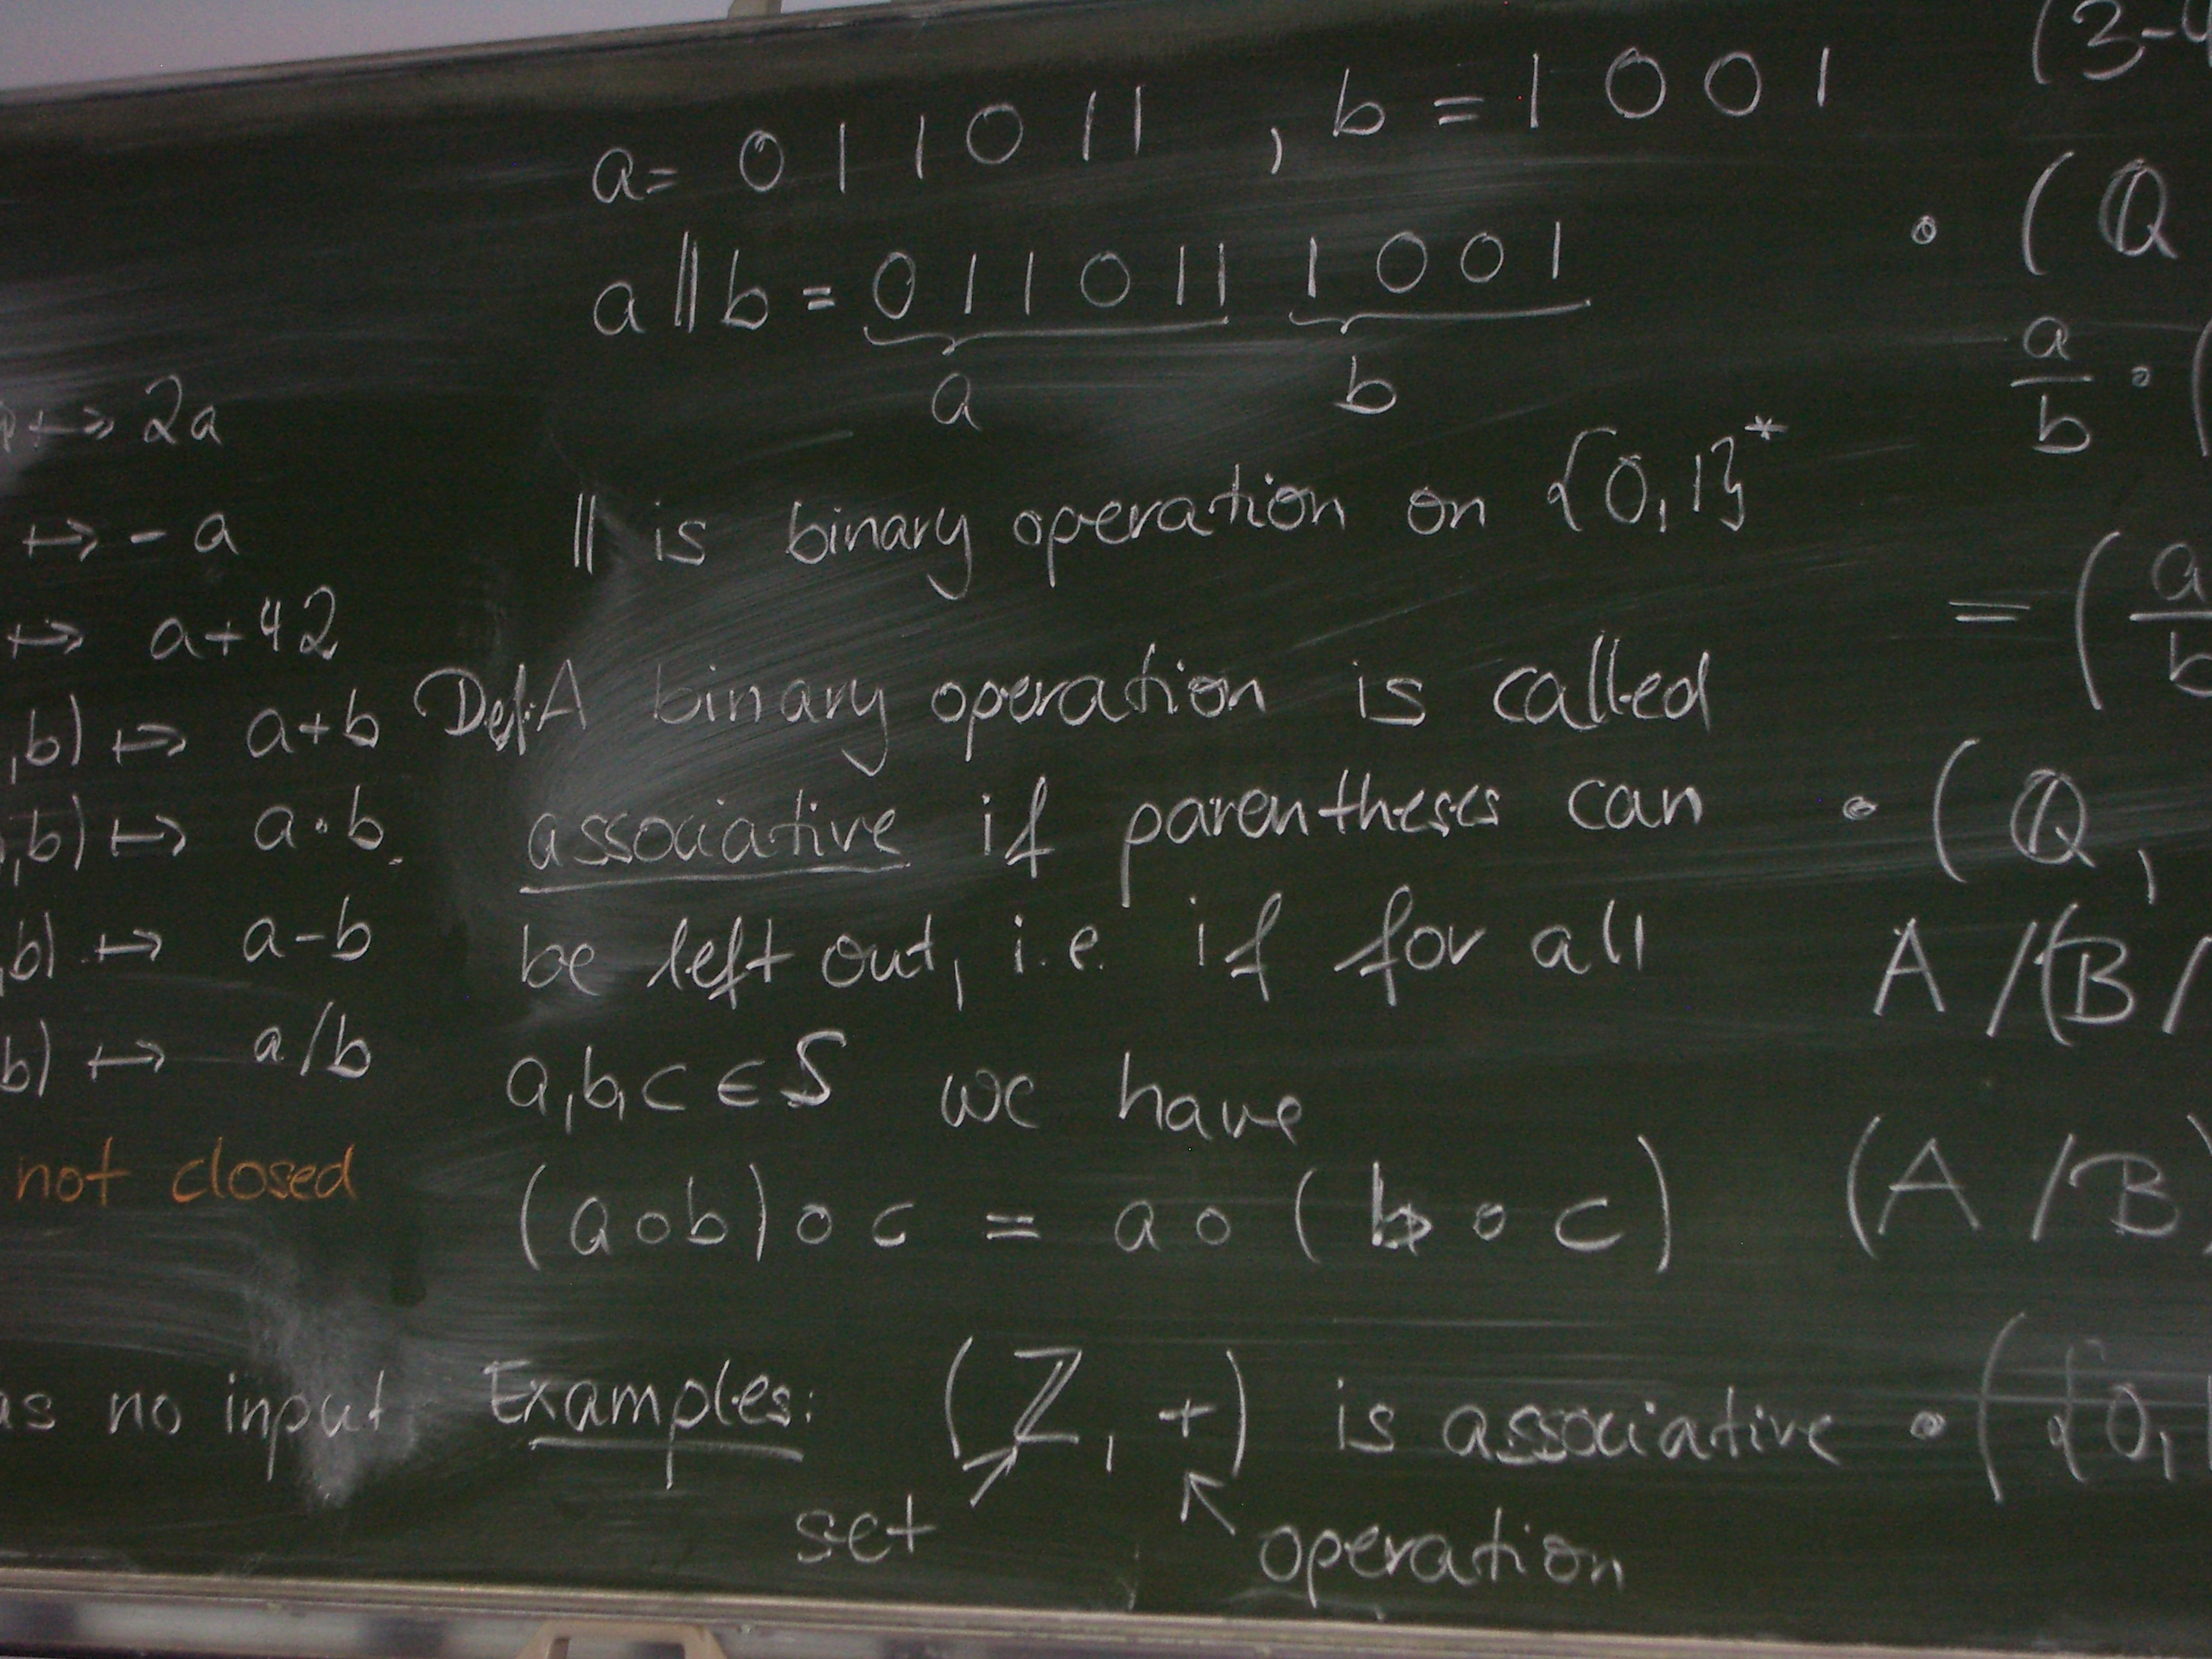 ↦ 2a
↦ - a
↦ a+42
,b) ↦ a+b
,b) ↦ a·b
,b) ↦ a-b
b) ↦ a/b
not closed
as no input
a= 0 1 1 0 1 1 , b = 1 0 0 1
a || b = 0 1 1 0 1 1 1 0 0 1
a b
|| is binary operation on {0,1}*
Def: A binary operation is called
associative if parentheses can
be left out, i.e. if for all
a,b,c ∈ S we have
(a∘b)∘c = a∘(b∘c)
Examples: (ℤ, +) is associative
set operation
(3-4
• (ℚ
a/b · (
= (a/b
• (ℚ,
A /(B/
(A /B)
• ({0,1